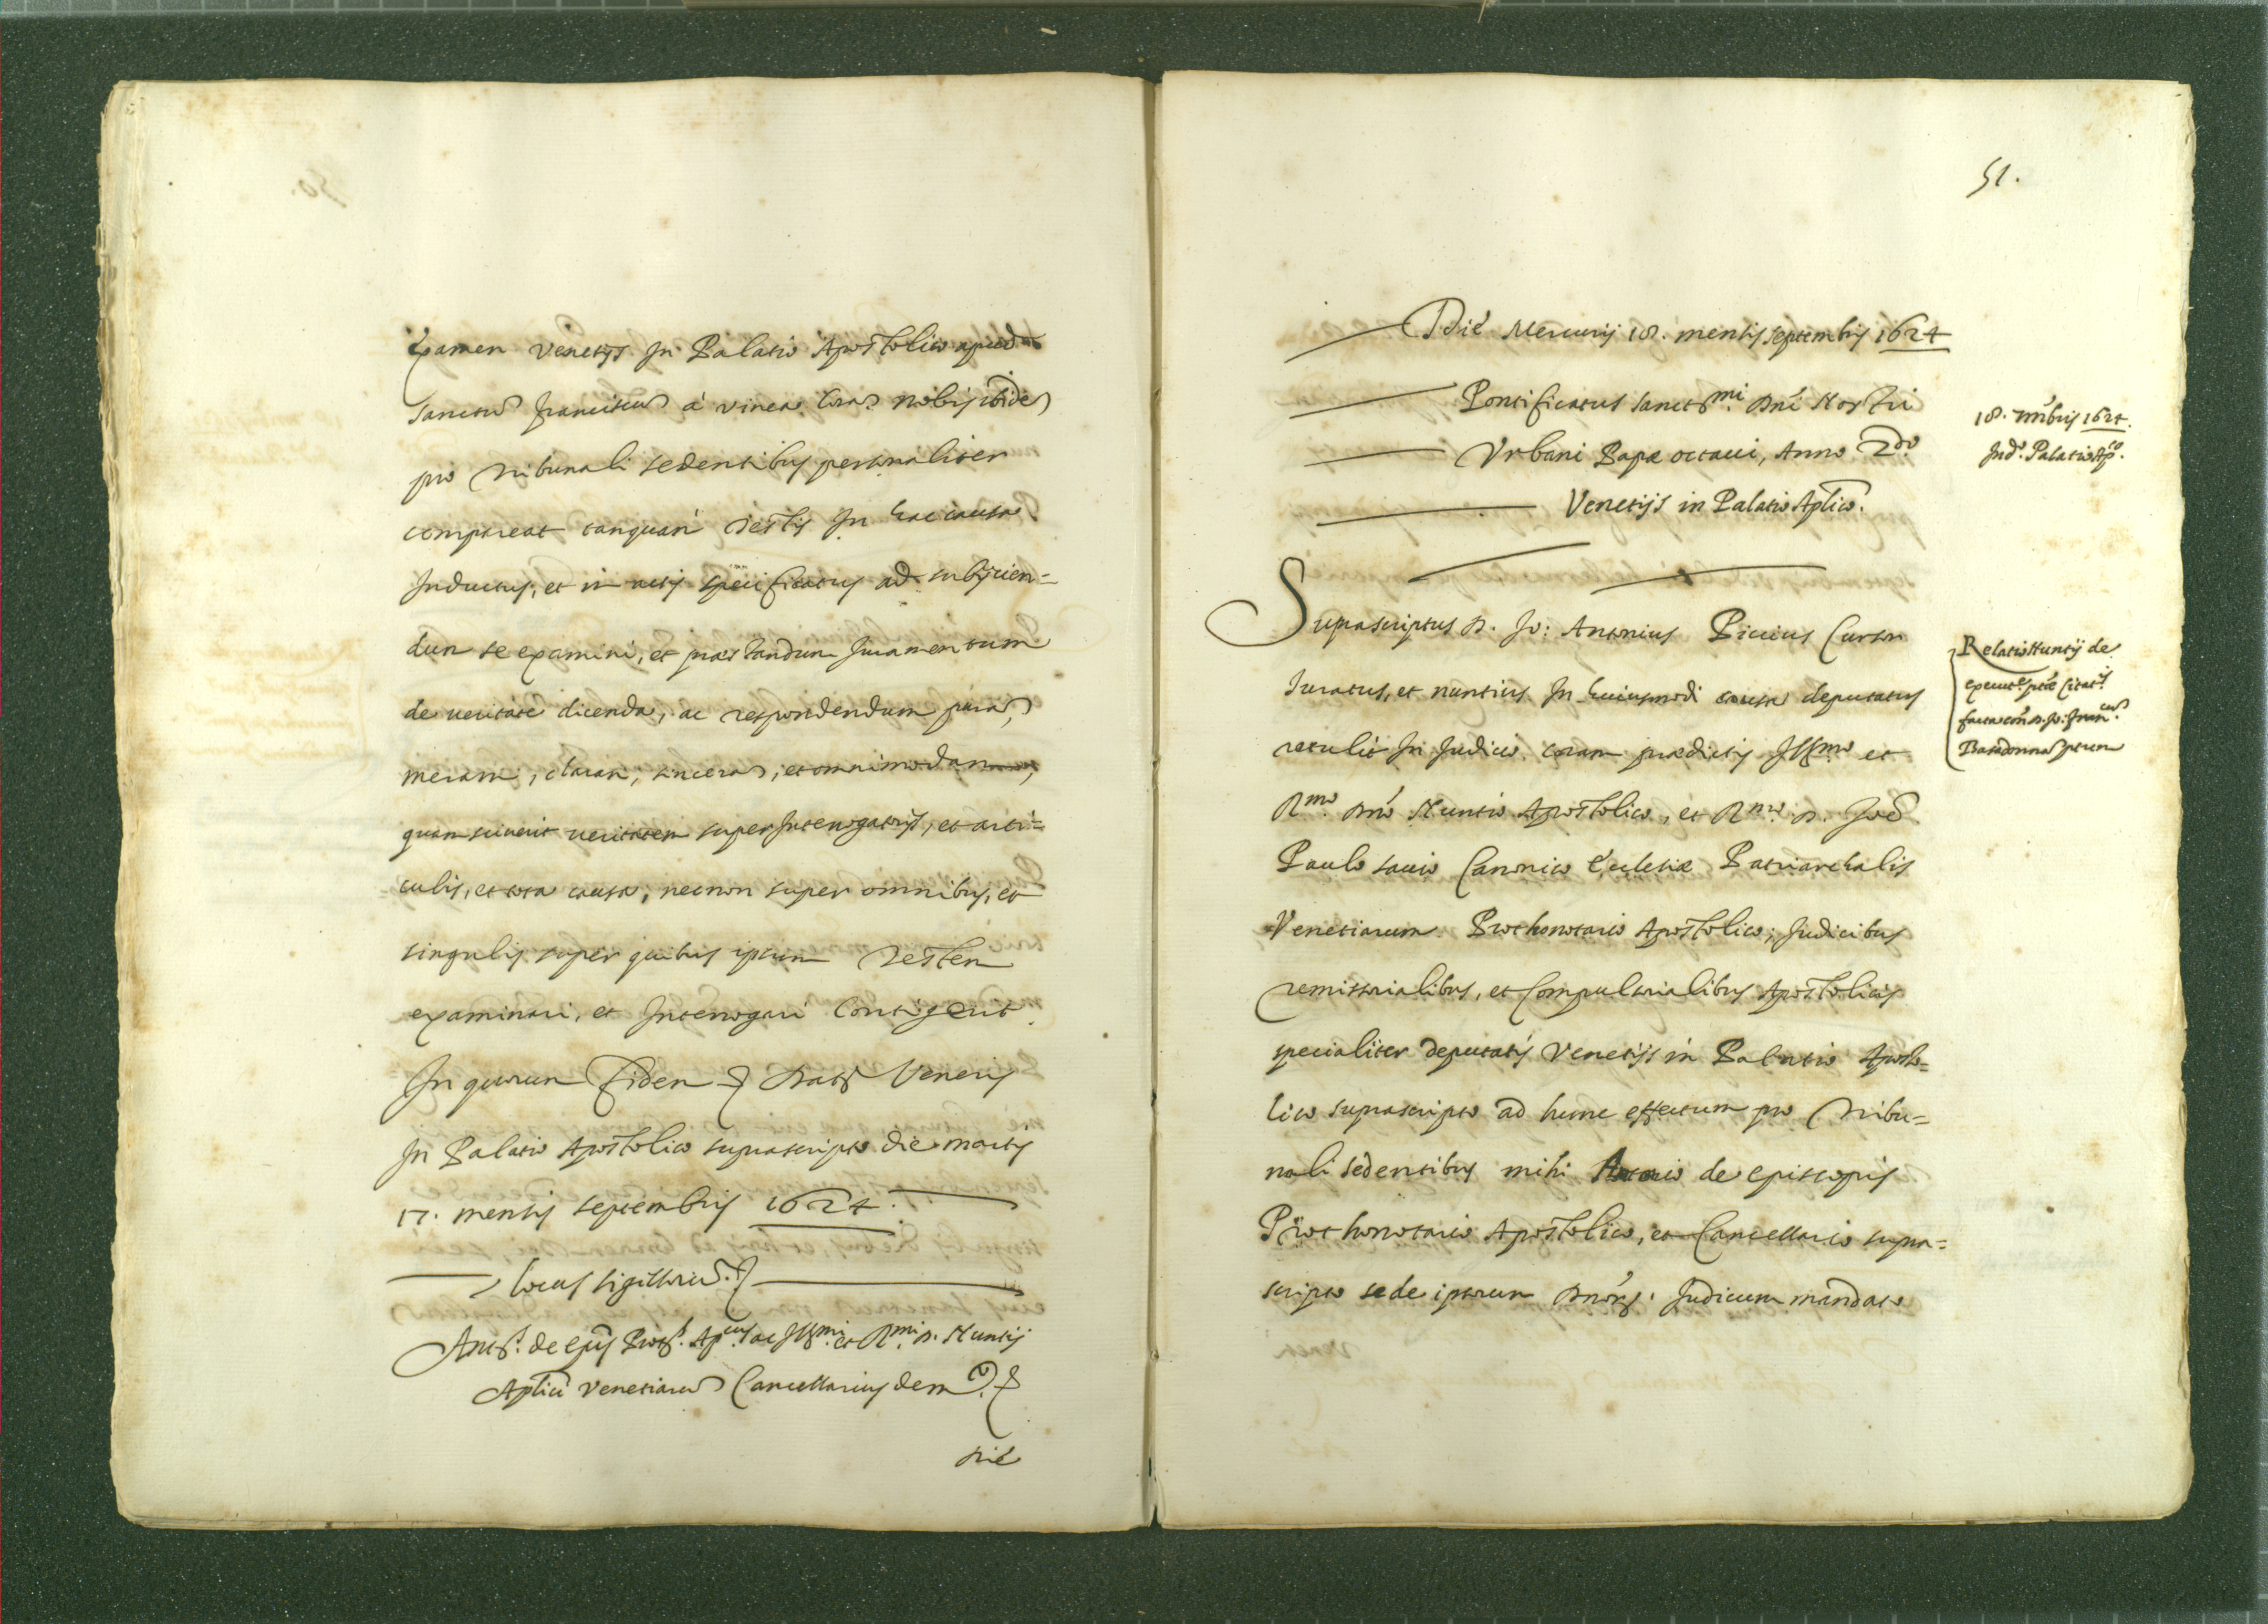 Examen Venetijs In Palatio Apostolico apud
Sanctũ Franciscũ à vinea. Corã nobis ibidẽ
pro Tribunali sedentibus personaliter
compareat tanquã Testis In hac causa
Inductus, et in actis specificatus ad subijcien=
dum se examini, et præstandum Iuramentum
de veritate dicenda, ac respondendum purã,
meram, claram, sincerã, et omnimodam,
quam sciverit veritatem super Interrogatorijs, et arti=
culis, et tota causa, necnon super omnibus, et
singulis super quibus ipsum Testem
examinari, et Interrogari Contigerit.
In quorum Fidem Dat. Venetijs
In Palatio Apostolico suprascripto die martis
17. mensis septembris 1624.
Locus sigillorũ.
Ant.s de Epis Prot.s Ap.cus ac Ill.mi et R.mi D. Nuntij
Aplici Venetiarũ Cancellarius de m.to
Die
51.
Die Mercurij 18. mensis septembris 1624
Pontificatus sanct.mi Dni Nostri
Vrbani Papæ octavi, Anno 2.do
Venetijs in Palatio Aplico.
18. 7mbris 1624.
In d.o Palatio Ap.co
Suprascriptus D. Jo: Antonius Piccius Cursor
Iuratus, et nuntius In huiusmodi causa deputatus
retulit In Iudicio coram prædictis Ill.mo et
R.mo Dno Nuntio Apostolico, et R.mo D. Joẽ
Paulo savio Canonico Ecclesiæ Patriarchalis
Venetiarum Prothonotario Apostolico, Judicibus
remissorialibus, et Compulsorialibus Apostolicis
specialiter deputatis Venetijs in Palatio Aposto=
lico suprascripto ad hunc effectum pro Tribu=
nali sedentibus mihi Antonio de Episcopis
Prothonotario Apostolico, et Cancellario supra=
scripto se de ipsorum Dnorũ Judicum mandato
Relatio Nuntij de
execut.e ptæ Citat.is
facta con D. Jo: Fran.cum
Basadonna ptum